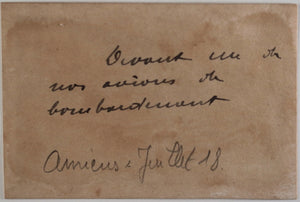 Devant un de
nos avions de
bombardement
Amiens - Juillet 18.